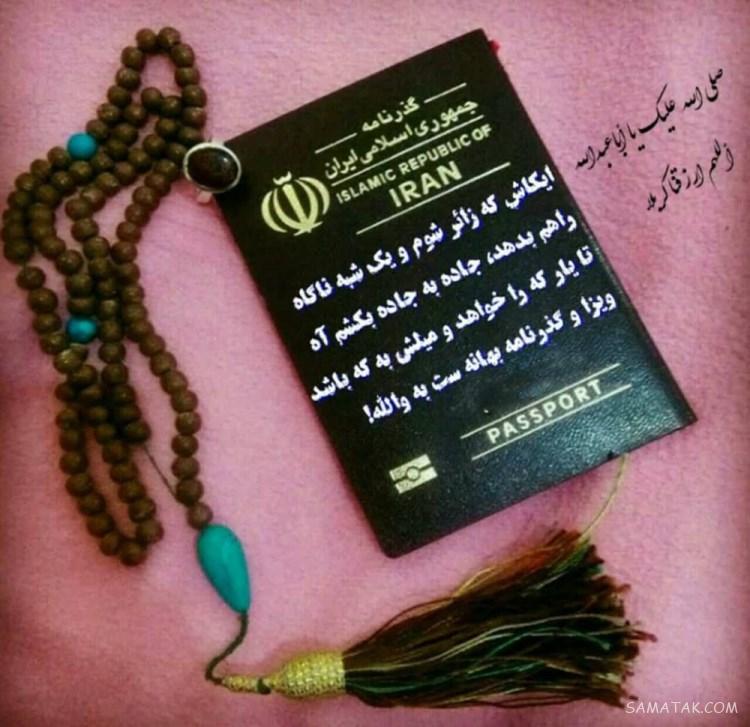 گذرنامه
جمهوری اسلامی ایران
ISLAMIC REPUBLIC OF
IRAN
ایکاش که زائر شوم و یک شبه ناگاه
راهم بدهد، جاده به جاده بکشم آه
تا یار که را خواهد و میلش به که باشد
ویزا و گذرنامه بهانه ست به والله!
PASSPORT
صلی الله علیک یا أبا عبدالله
اللهم ارزقنا کربلا
SAMATAK.COM